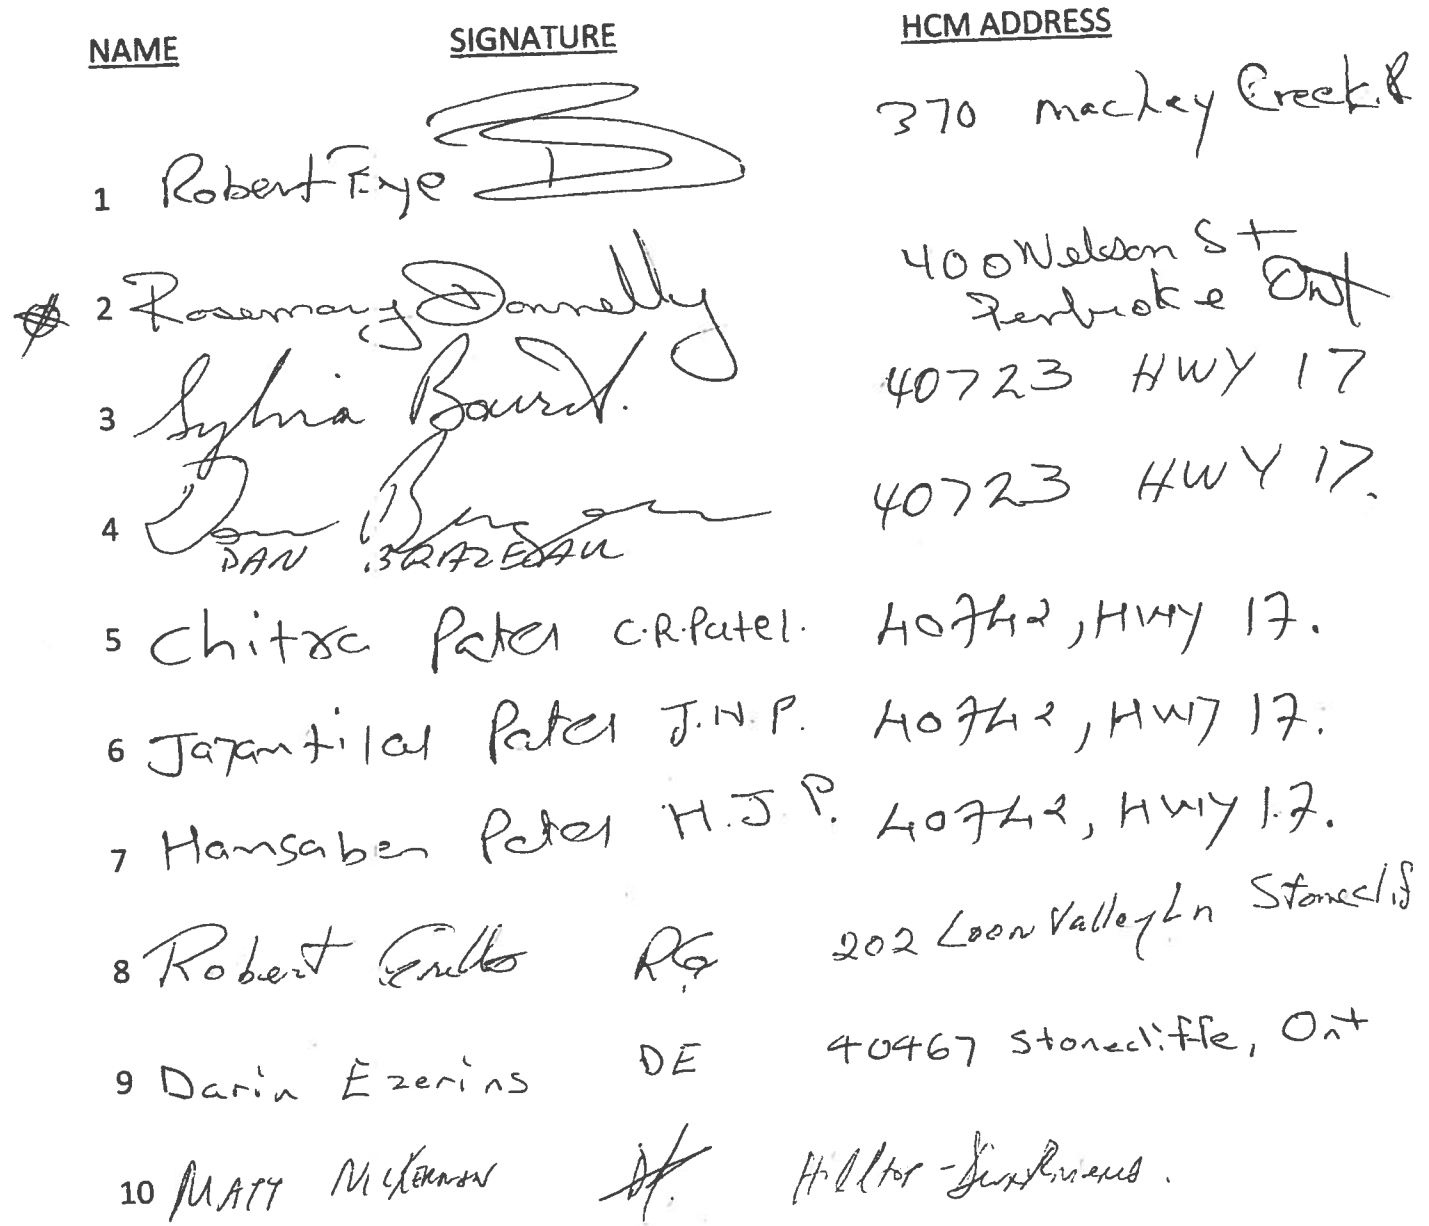 NAME SIGNATURE HCM ADDRESS
1 Robert Eye 370 Mackey Creek R
2 Rosemary Donnelly 400 Nelson St
Pembroke Ont
3 Sylvia 40723 HWY 17
4 Dan 40723 HWY 17.
DAN BRAZEAU
5 Chitra Patel C.R.Patel. 40742, HWY 17.
6 Jayantilal Patel J.N.P. 40742, HWY 17.
7 Hansaben Patel H.J.P. 40742, HWY 17.
8 Robert RG 202 Loon Valley Ln Stoneclif
9 Darin Ezerins DE 40467 Stonecliffe, Ont
10 MATT Hilltop